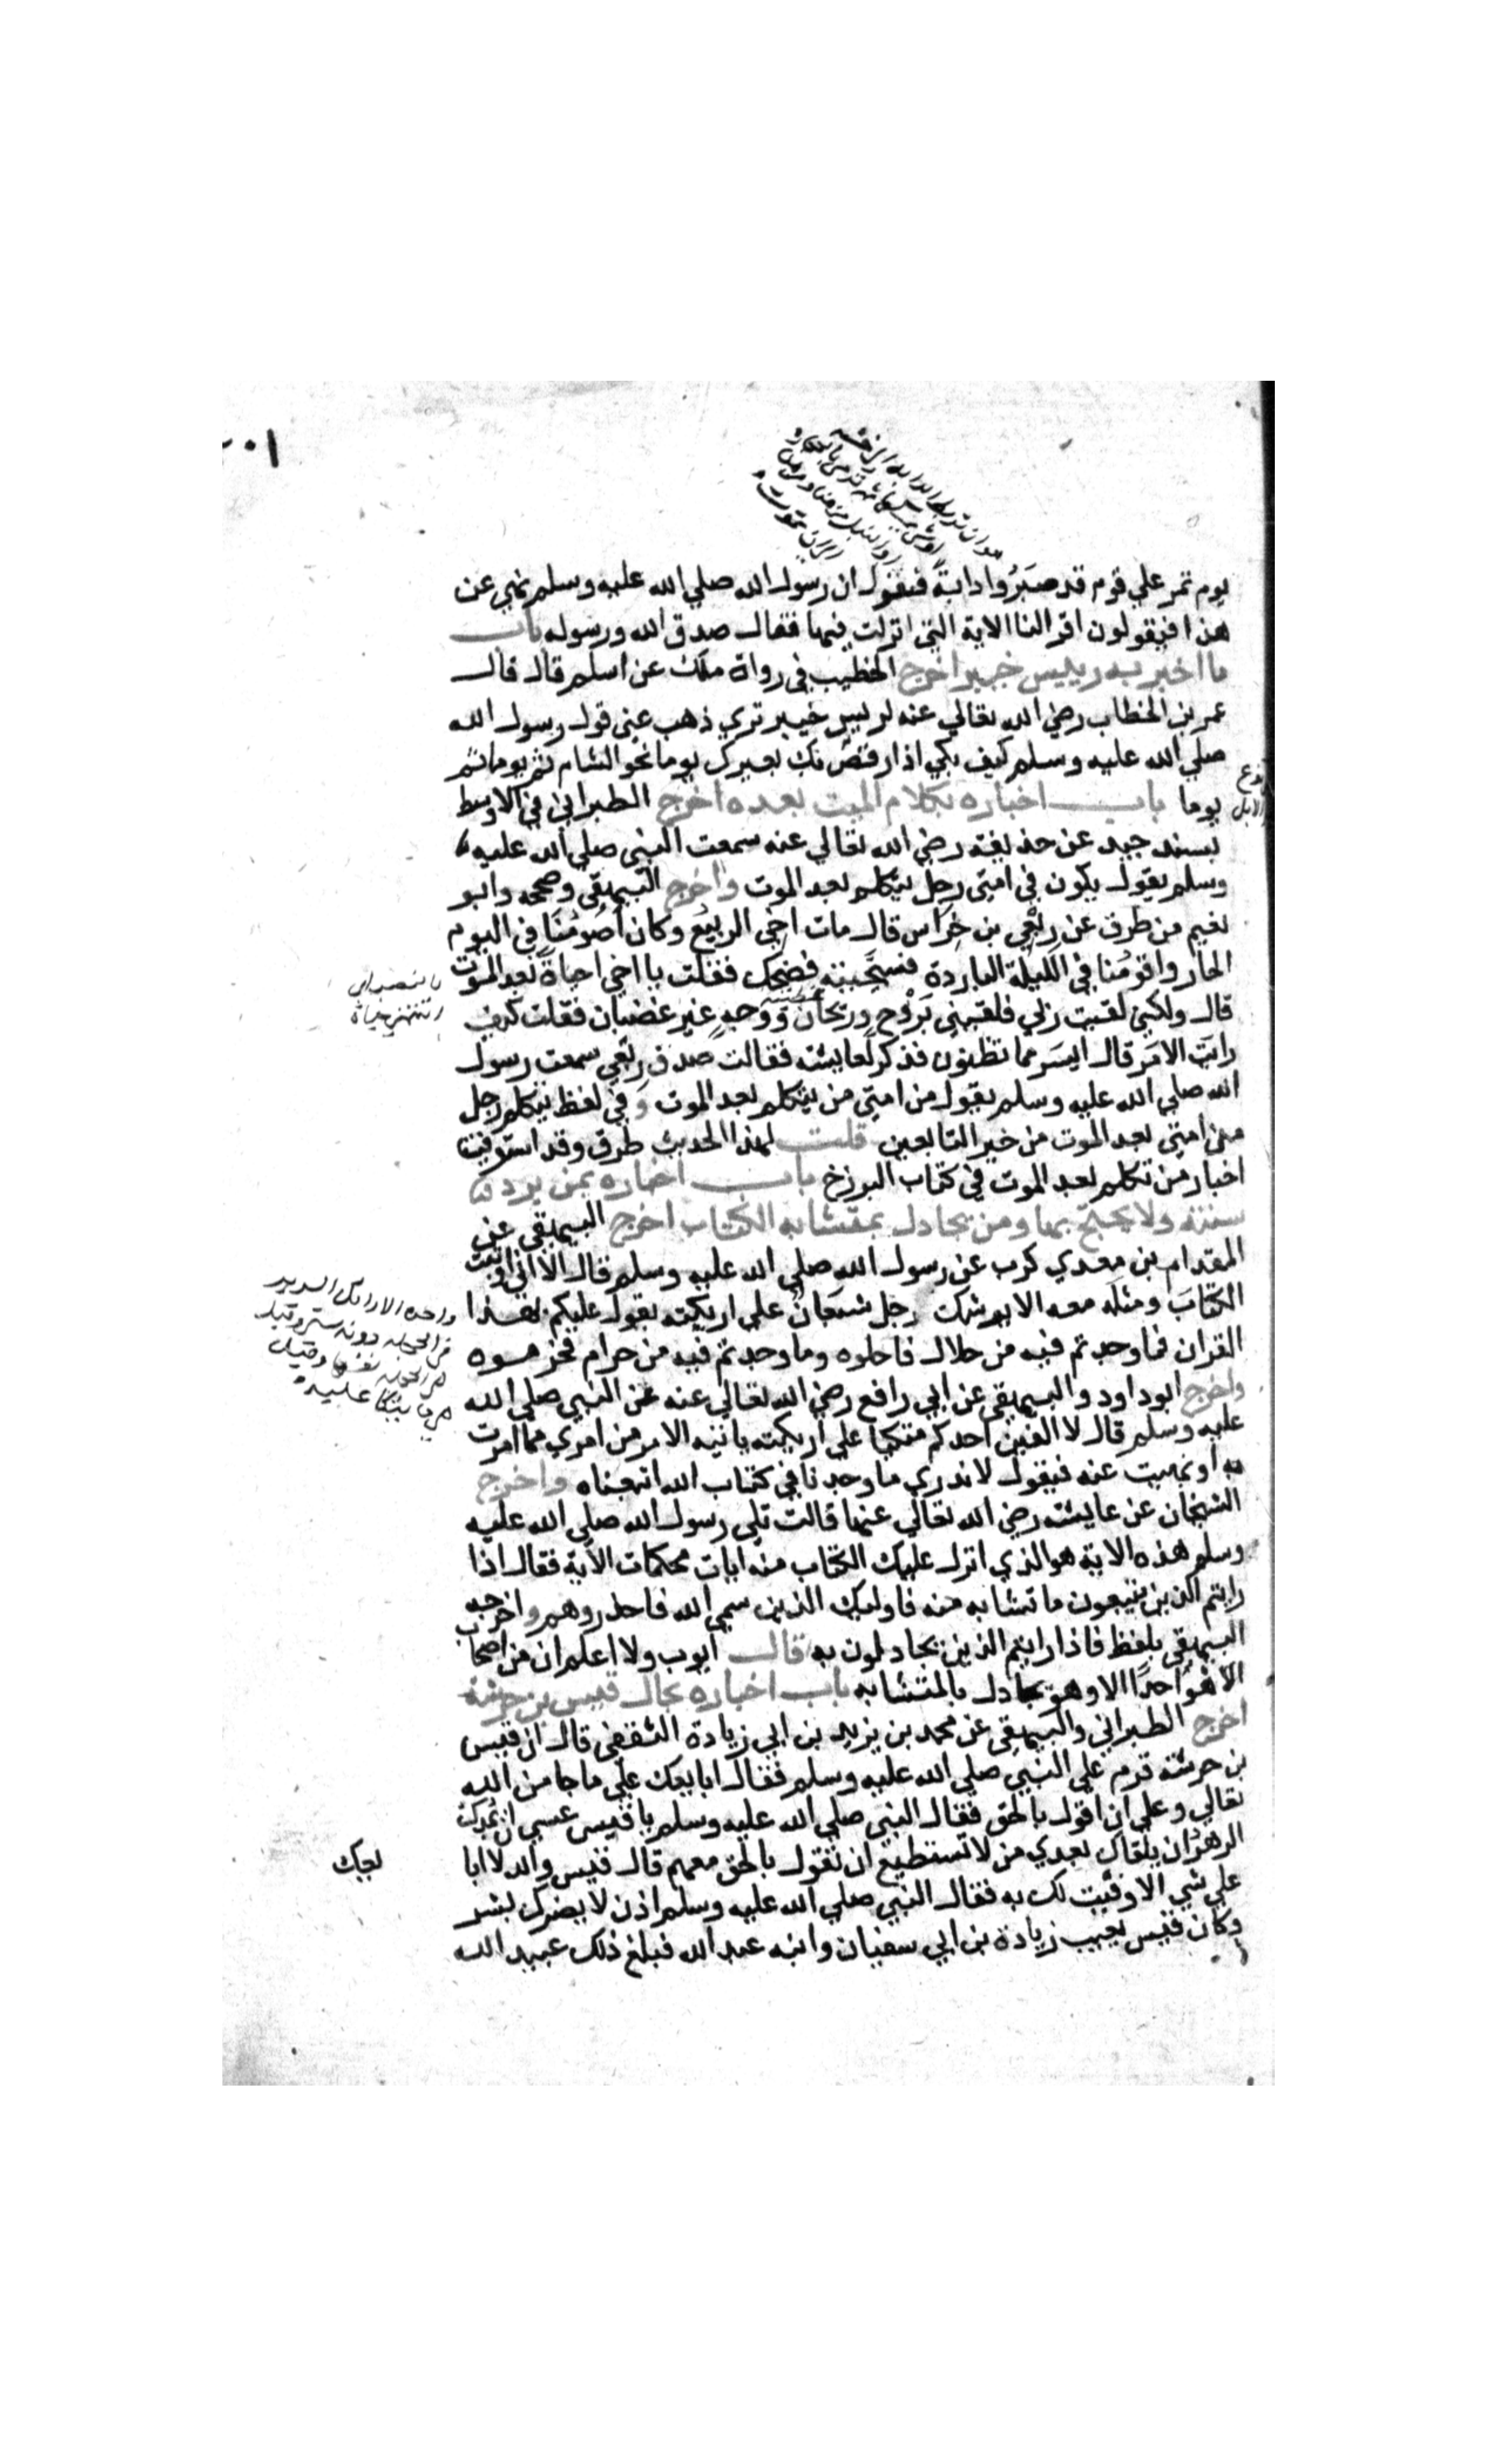 ٢٠١
يوم تمر علي قوم قد صبروا دابة فتقول ان رسول الله صلي الله عليه وسلم نهي عن
هذا فيقولون اقرا لنا الاية التي انزلت فيها فقال صدق الله ورسوله باب
ما اخبر به رييس خيبر اخرج الخطيب في رواة ملك عن اسلم قال قال
عمر بن الخطاب رضي الله تعالي عنه لرييس خيبر تري ذهب عني قول رسول الله
صلي الله عليه وسلم كيف بكي اذا رقصت بك بعيرك يوما نحو الشام ثم يوما ثم
يوما باب اخباره بكلام الميت بعده اخرج الطبراني في الاوسط
بسند جيد عن حذيفة رضي الله تعالي عنه سمعت النبي صلي الله عليه
وسلم يقول يكون في امتي رجل يتكلم بعد الموت واخرج البيهقي وصححه وابو
نعيم من طرق عن رِبْعي بن خِرَاس قال مات اخي الربيع وكان اصْومُنَا في اليوم
الحار واقومُنا في الليلة الباردة فسَجَّيته فضحك فقلت يا اخي احياةً بعد الموت
قال ولكني لقيت ربي فلقيني بَرْوح وريحان ووجهٍ غير غضبان فقلت كيف
رايتَ الامَر قال ايسَر مما تظنون فذكر لعايشة فقالت صدق رِبْعي سمعت رسول
الله صلي الله عليه وسلم يقول من امتي من يتكلم بعد الموت وفي لفظ يتكلم رجل
من امتي بعد الموت من خير التابعين قلت لهذا الحديث طرق وقد استوفيت
اخبار من تكلم بعد الموت في كتاب البرزخ باب اخباره بمن يرد
سنته ولا يحتج بها ومن يجادل بمتشابه الكتاب اخرج البيهقي عن
المقدام بن معدي كرب عن رسول الله صلي الله عليه وسلم قال الا اني اوتيت
الكتابَ ومثلَه معه الا يوشك رجل شبعانُ علي اريكته يقول عليكم بهذا
القران فما وجدتم فيه من حلال فاحلوه وما وجدتم فيه من حرام فحرموه
واخرج ابو داود والبيهقي عن ابي رافع رضي الله تعالي عنه عن النبي صلي الله
عليه وسلم قال لا الفين احدكم متكيا علي اريكته ياتيه الامر من امري مما امرت
به او نهيت عنه فيقول لا ندري ما وجدنا في كتاب الله اتبعناه واخرج
الشيخان عن عايشة رضي الله تعالي عنها قالت تلي رسول الله صلي الله عليه
وسلم هذه الاية هو الذي انزل عليك الكتاب منه ايات محكمات الاية فقال اذا
رايتم الذين يتبعون ما تشابه منه فاوليك الذين سمي الله فاحذروهم واخرجه
البيهقي بلفظ فاذا رايتم الذين يجادلون به قال ايوب ولا اعلم ان من اصحاب
الاهواء احدًا الا وهو يجادل بالمتشابه باب اخباره بحال قيس بن خرشة
اخرج الطبراني والبيهقي عن محمد بن يزيد بن ابي زيادة الثقفي قال ان قيس
بن خرشة قدم علي النبي صلي الله عليه وسلم فقال ابايعك علي ما جا من الله
تعالي وعلي ان اقول بالحق فقال النبي صلي الله عليه وسلم يا قيس عسي ان يمدك
الدهر ان يلقاك بعدي من لا تستطيع ان تقول بالحق معهم قال قيس والله لا ابا
يعك
علي شي الا وفيت لك به فقال النبي صلي الله عليه وسلم اذن لا يضرك بشر
وكان قيس يعيب زيادة بن ابي سفيان وابنه عبد الله فبلغ ذلك عبيد الله